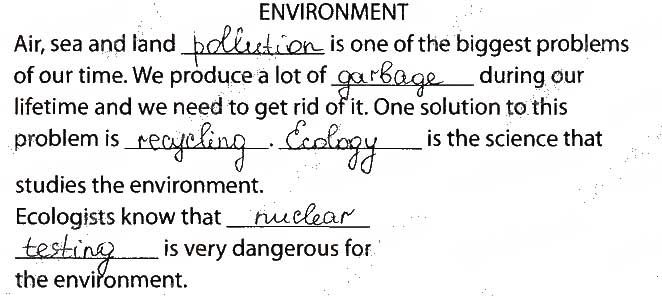 ENVIRONMENT
Air, sea and land pollution is one of the biggest problems
of our time. We produce a lot of garbage during our
lifetime and we need to get rid of it. One solution to this
problem is recycling. Ecology is the science that
studies the environment.
Ecologists know that nuclear
testing is very dangerous for
the environment.